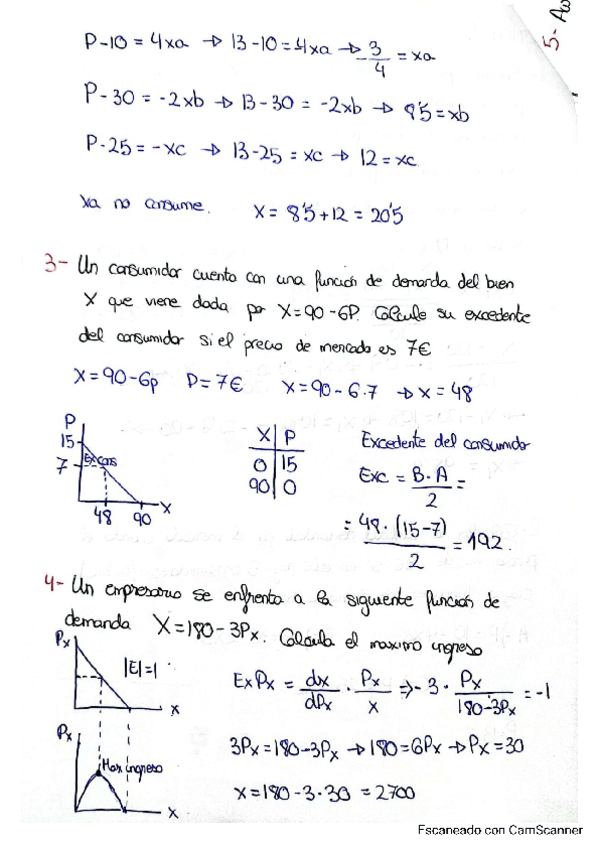 5- Aw
P-10 = 4xa → 13-10 = 4xa → -3/4 = xa
P-30 = -2xb → 13-30 = -2xb → 8'5 = xb
P-25 = -xc → 13-25 = xc → 12 = xc
xa no consume. X = 8'5+12 = 20'5
3- Un consumidor cuenta con una función de demanda del bien
X que viene dada por X=90-6P. Calcule su excedente
del consumidor si el precio de mercado es 7€
X=90-6p P=7€ X=90-6·7 → x=48
P
15
7
Ex cons
48 90 X
X | P
0 | 15
90 | 0
Excedente del consumidor
Exc = B·A/2 =
= 48·(15-7)/2 = 192.
4- Un empresario se enfrenta a la siguiente función de
demanda X=180-3Px. Calcula el maximo ingreso
Px
|E|=1
x
ExPx = dx/dPx · Px/x => -3 · Px/180-3Px = -1
3Px=180-3Px → 180=6Px → Px=30
Px
Max ingreso
x
x=180-3·30 = 2700
Escaneado con CamScanner